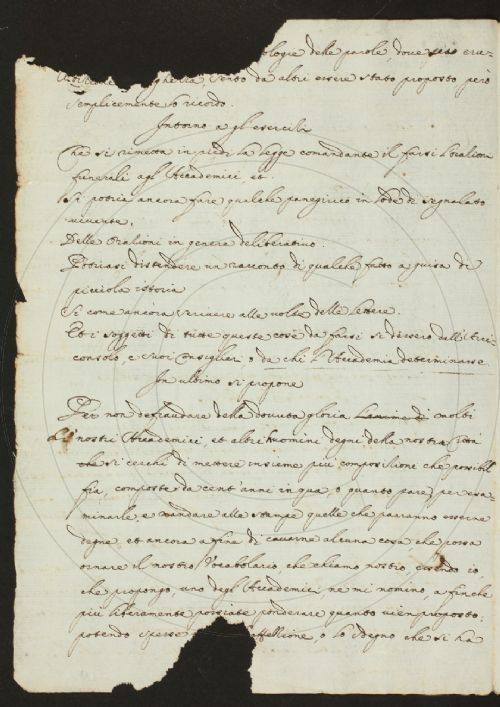 ologie delle parole, dove
sento da altri essere stato proposto però
semplicemente lo ricordo.
Intorno a gli esercizi
Che si rimetta in piedi la legge comandante il farsi l'orazioni
funerali agl'Accademici, et.
Si potria ancora fare qualche panegirico in lode di segnalato
vivente.
Delle Orazioni in genere deliberativo.
Potriasi distendere un racconto di qualche fatto a guisa di
picciola istoria
Si come ancora scrivere alle volte delle lettere.
Et i soggetti di tutte queste cose da farsi si dessero dall'Arci-
consolo, e suoi Consiglieri o da chi l'Accademia determinasse
In ultimo si propone
Per non defraudare della dovuta gloria molti
nostri Accademici, et altri huomini degni della nostra Città
che si cerchi di mettere insieme più composizioni che possibil
fia, composte da cent'anni in qua, o quanto pare, per esa
minarle, e mandare alle stampe quelle che parranno esserne
degne, et ancora a fine di cavarne alcuna cosa che possa
ornare il nostro Vocabolario, che chiamo nostro, essendo io
che propongo, uno degli Accademici, ne mi nomino, a finche
più liberamente possiate ponderare quanto vien proposto:
potendo spesse o lo sdegno che si ha